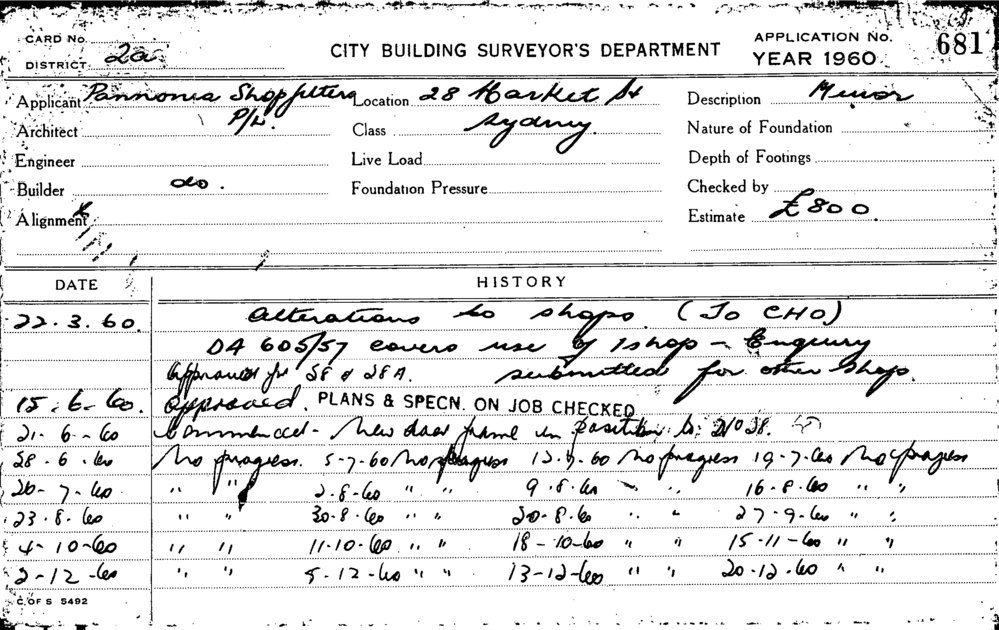 CARD No.
DISTRICT. 2a
CITY BUILDING SURVEYOR'S DEPARTMENT
APPLICATION No. 681
YEAR 1960
Applicant Pannonia Shopfitters P/L.
Location 28 Market St Sydney.
Description Minor
Architect
Class
Nature of Foundation
Engineer
Live Load
Depth of Footings
Builder do.
Foundation Pressure
Checked by
Alignment
Estimate £800.
DATE HISTORY
22.3.60. Alterations to shops. (To CHO)
DA 605/57 covers use of 1 shop - Enquiry
Approved for 28 & 28A. submitted for other shop.
15-6-60. Approved. PLANS & SPECN. ON JOB CHECKED
21-6-60 Commenced - New door frame in position to No 28.
28.6.60 No progress. 5-7-60 No progress 12.7.60 No progress 19-7-60 No progress
26-7-60 " " 2.8.60 " " 9.8.60 " " 16.8.60 " "
23.8.60 " " 30.8.60 " " 20.8.60 " " 27-9-60 " "
4-10-60 " " 11-10-60 " " 18-10-60 " " 15-11-60 " "
2-12-60 " " 5-12-60 " " 13-12-60 " " 20-12-60 " "
C. OF S 5492